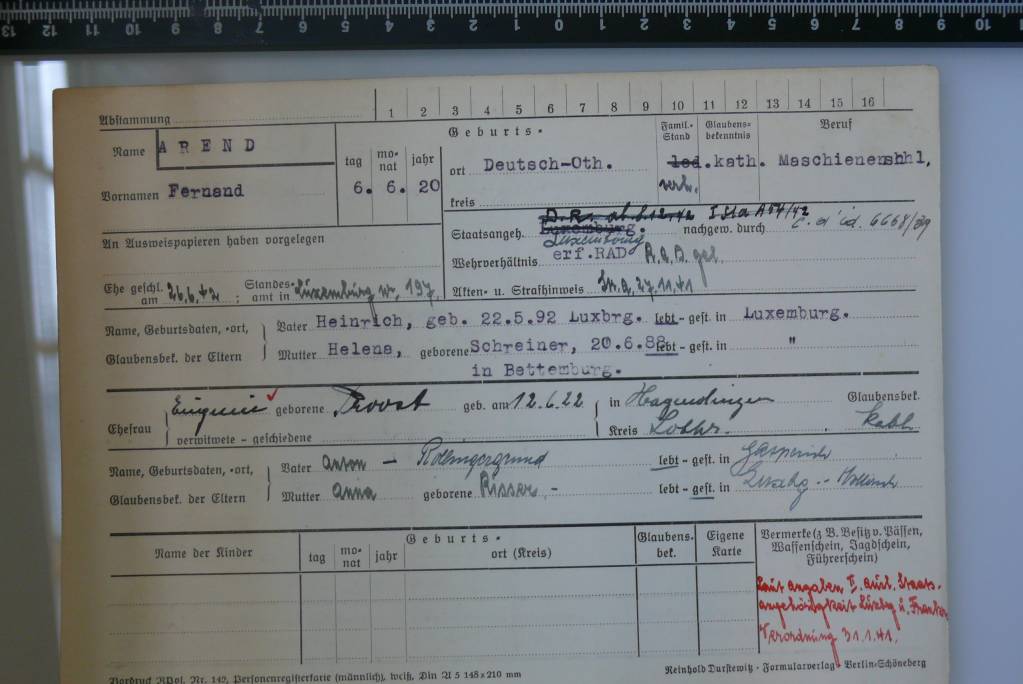 13 12 11 10 9 8 7 6 5 4 3 2 1 0 1 2 3 4 5 6 7 8 9 10
Abstammung 1 2 3 4 5 6 7 8 9 10 11 12 13 14 15 16
Name AREND
Vornamen Fernand
Geburts-
tag monat jahr
6. 6. 20
ort Deutsch-Oth.
kreis
Famil.-Stand
led.
verh.
Glaubensbekenntnis
kath.
Beruf
Maschienenshhl,
An Ausweispapieren haben vorgelegen
D.R. ab
Staatsangeh. Luxemburg. nachgew. durch
Luxemburg
Wehrverhältnis erf.RAD R.A.D. gel
Ehe geschl. am 26.6.42; Standesamt in Luxemburg nr. 197
Akten- u. Strafhinweis Str.A. 27.11.41
Name, Geburtsdaten, -ort, Glaubensbek. der Eltern
Vater Heinrich, geb. 22.5.92 Luxbrg. lebt - gest. in Luxemburg.
Mutter Helena, geborene Schreiner, 20.6.88 lebt - gest. in "
in Bettemburg.
Ehefrau Eugenie geborene Provst geb. am 12.6.22 in Hagendingen Glaubensbek.
verwitwete - geschiedene Kreis Lothr. kath
Name, Geburtsdaten, -ort, Glaubensbek. der Eltern
Vater Anton - Rollingergrund lebt - gest. in Gasperich
Mutter Anna geborene Risser - lebt - gest. in Luxbg - Hollerich
Name der Kinder
Geburts-
tag monat jahr ort (Kreis)
Glaubensbek.
Eigene Karte
Vermerke (z. B. Besitz v. Pässen,
Waffenschein, Jagdschein,
Führerschein)
Laut Angaben I. Ausl. Staats-
angehörigkeit Luxbg u. Frankr.
Verordnung 31.1.41.
Vordruck RPol. Nr. 142, Personenregisterkarte (männlich), weiß, Din A 5 148×210 mm
Reinhold Durstewitz · Formularverlag · Berlin-Schöneberg